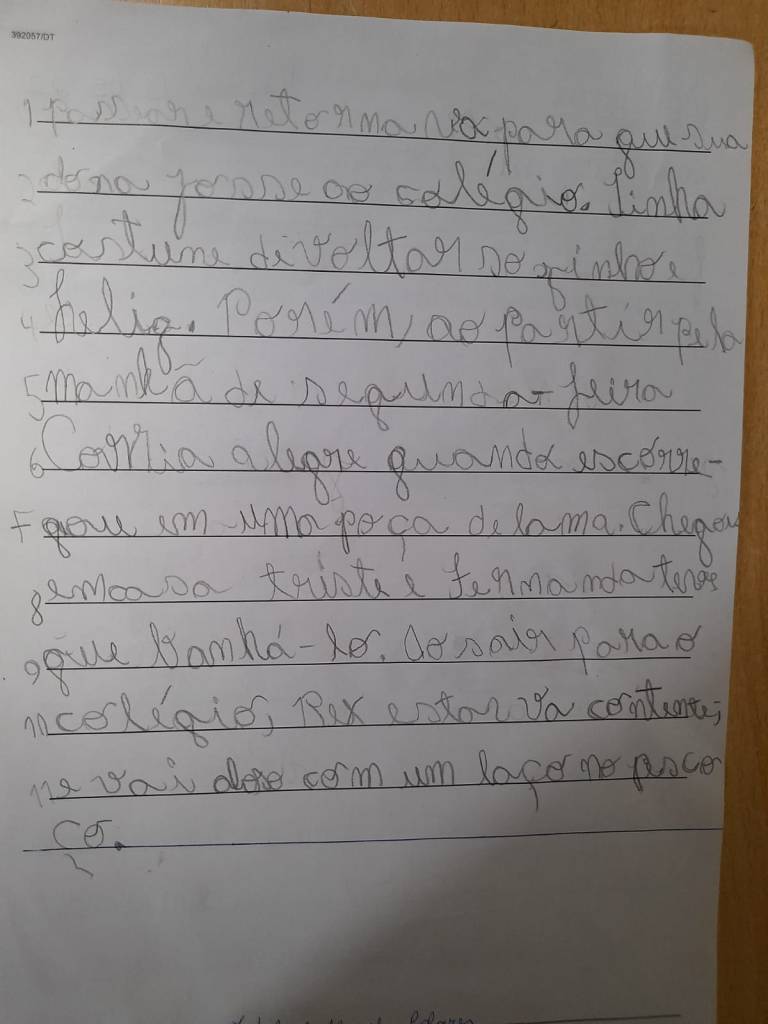 392057/DT
1 passear e retornava para que sua
2 dona fosse ao colégio. Tinha
3 costume de voltar sozinho e
4 feliz. Porém, ao partir pela
5 manhã de segunda-feira
6 Corria alegre quando escorre-
7 gou em uma poça de lama. Chegou
8 em casa triste e Fernanda teve
9 que banhá-lo. Ao sair para o
10 colégio, Rex estava contente,
11 e vai com um laço no pesco
ço.